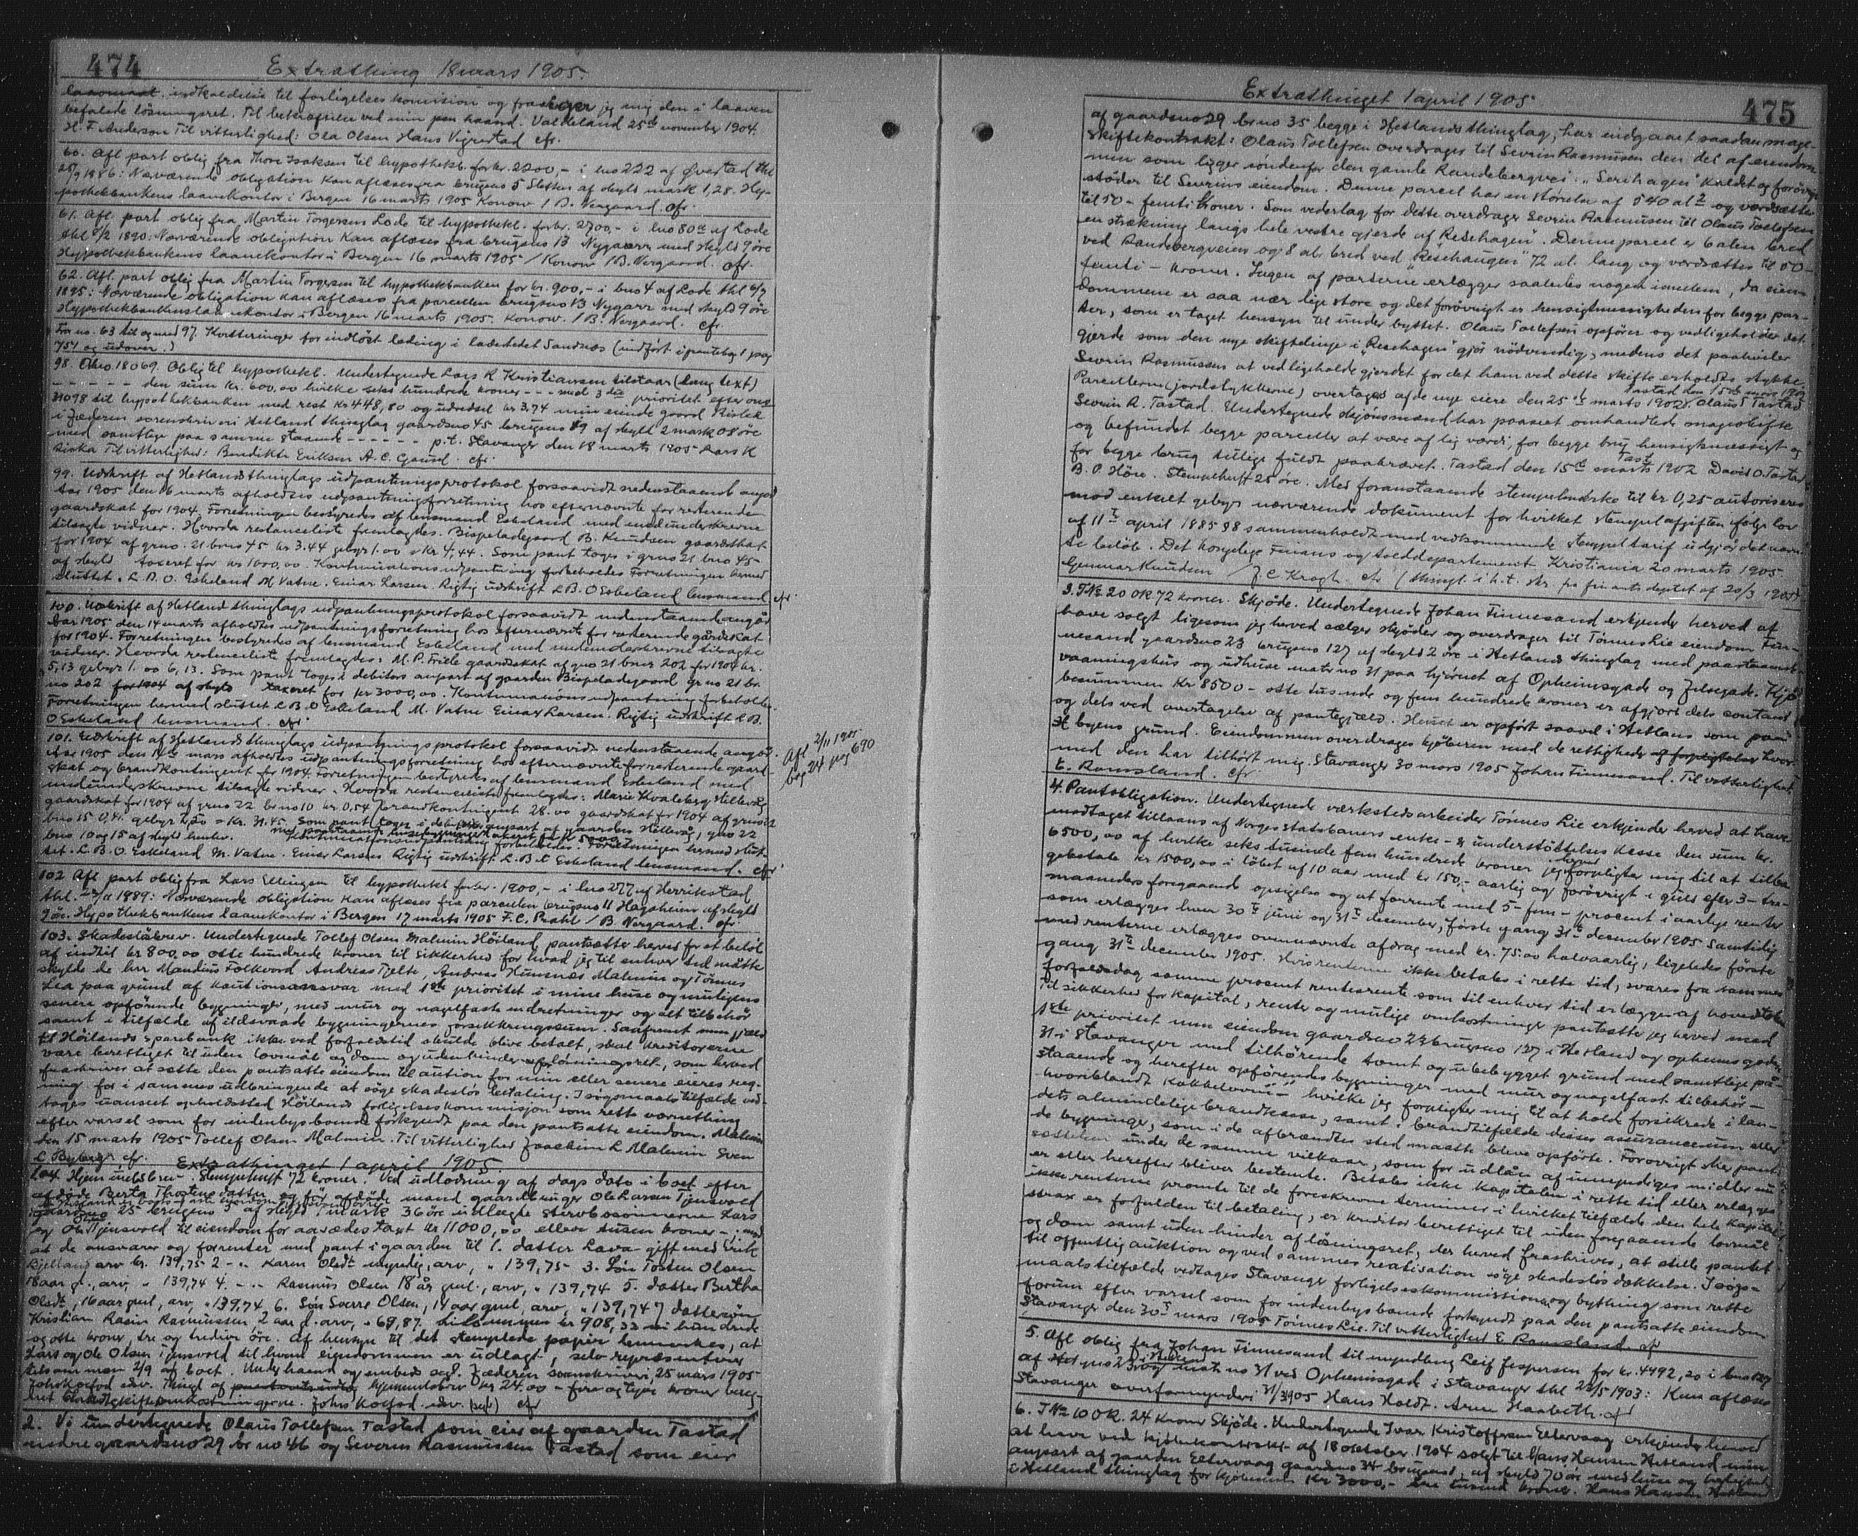 474
Extrathing 18 mars 1905.
indkaldelse til forligelses komision og frasiger jeg mig den i loven
befalede løsningsret. Til bekræftelse ved min pen haand. Valdeland 25de november 1904.
H. F. Anderson Til vitterlighed: Ola Olsen Hans Vigrestad cfr.
60. Afl part oblig fra Thore Isaksen til hypothekb. for kr. 2200,- i lno 222 af Øvestad thl
1886: Nærværende obligation kan aflæses fra brugsno 5 Sletten af skyld mark 1,28. Hy-
pothekbankens laanekontor i Bergen 16 marts 1905 Konow / B. Vergaard. cfr.
61. Afl. part oblig fra Martin Torgersen Lode til hypothekb. for kr. 2700,- i lno 80 af Lode
thl 1890: Nærværende obligation kan aflæses fra brugsno 13 Nygaarr med skyld 9 øre
Hypothekbankens laanekontor i Bergen 16 marts 1905 / Konow / B. Vergaard. cfr.
62. Afl. part oblig fra Martin Torgersen til hypothekbanken for kr. 900,- i bno 4 af Lode thl
1895: Nærværende obligation kan aflæses fra parcellen brugsno 13 Nygarr med skyld 9 øre
Hypothekbankens laanekontor i Bergen 16 marts 1905. Konow. / B. Vergaard. cfr.
Fra no. 63 til og med 97. Kvitteringer for indløst ladning i ladestedet Sandnæs (indført i panteb
751 og udover.)
98. Obno. 18069. Oblig til hypothekb. Undertegnede Lars K Kristiansen tilstaar (lang text)
- - - - - - den sum kr. 600,00 hvilke seks hundrede kroner - - - med 3die prioritet efter
31098 til hypothekbanken med rest kr 448,80 og udredsel kr. 3,74 min eiende gaard
i Jæderen sorenskriveri Hetland thinglag gaardsno 45 brugsno 19 af skyld 2 mark 08 øre
med samtlige paa samme staaende - - - - - - p.t. Stavanger den 18 marts 1905 Lars K
Riska Til vitterlighed: Bendikte Eriksen A. C. Gausel. cfr.
99. Udskrift af Hetlands thinglags udpantningsprotokol forsaavidt nedenstaaende angaar
Aar 1905 den 16 marts afholdtes udpantningsforretning hos efternævnte for resterende
gaardskat for 1904. Forretningen bestyredes af lensmand Eskeland med medunderskrevne
tilsagte vidner. Hvorda restanceliste fremlagdes. Bispeladegaard B. Knudsen gaardskat
for 1904 af gno. 21 bno 45 kr 3.44 gebyr 1.00 = kr 4,44. Som pant toges i gno 21 bno 45
af skyld taxeret for kr 1000,00. Kontinuationsudpantning forbeholdes Forretningen hermed
sluttet. L. B. O. Eskeland M. Vatne. Einar Larsen. Rigtig udskrift L. B. O Eskeland lensmand cfr
100. Udskrift af Hetland thinglags udpantningsprotokol forsaavidt nedenstaaende angår
Aar 1905 den 14 marts afholdtes udpantningsforretning hos efternævnte for resterende gårdskat
for 1904. Forretningen bestyredes af lensmand Eskeland med medunderskrevne tilsagte
vidner. Hvorda restanceliste fremlagdes: M. P. Friele gaardskat af gno 21 bnos 202 for 1904 kr.
5,13 gebyr 1.00 6,13. Som pant toges i debitors anpart af gaarden Bispeladegaard gr no 21 br.
no 202 for 1904 af skyld taxeret for kr 3000,00. Kontinuationsudpantning forbeholdes
Forretningen hermed sluttet L. B. O Eskeland M. Vatne Einar Larsen. Rigtig udskrift L. B.
O Eskeland lensmand. cfr.
101. Udskrift af Hetlands thinglags udpantningsprotokol forsaavidt nedenstaaende angår
Aar 1905 den 14de mars afholdtes udpantningsforretning hos efternævnte for resterende gaard-
skat og brandkontingent for 1904. Forretningen bestyredes af lensmand Eskeland med
medunderskrevne tilsagte vidner. Hvorda restanceliste fremlagdes: Marie Kvaleberg Hillevåg
gaardskat for 1904 af gno 22 br no 10 kr 0,54 brandkontingent 28.00 gaardskat for 1904 af gno 22
bno 15 0,41 gebyr 2,50 = Kr. 31.45. Som pant toges i debitors anpart af gaarden Hillevåg, gno 22
bno 10 og 15 af skyld Kontinuationsudpantning forbeholdes. Forretningen hermed slut-
tet. L. B. O. Eskeland M. Vatne. Einar Larsen Rigtig udskrift L. B. O Eskeland lensmand. cfr
Afl 2/11 1905
bog 24 pag 690
102 Afl part oblig fra Lars Ellingsen til hypothekb for kr. 1900,- i lno 277 af Herrikstad
thl. 1889: Nærværende obligation kan aflæses fra parcellen brugsno 11 Hagaheim af skyld
9 øre. Hypothekbankens laanekontor i Bergen 17 marts 1905 F. C. Prahl / B. Vergaard. cfr
103. Skadesløsbrev. Undertegnede Tollef Olsen Malmin Høiland pantsætter herved for et beløb
af indtil kr 800,00 otte hundrede kroner til sikkerhed for hvad jeg til enhver tid måtte
skylde de hrr Mandius Folkvord Andreas Tjelte, Andreas Hunsnæs Malmin og Tønnes
Lea paa grund af kautionsansvar med 1ste prioritet i mine huse og muligens
senere opførende bygninger, med mur og nagelfaste indretninger og alt tilbehør
samt i tilfælde af ildsvaade bygningernes forsikkringssum. Saafremt min gjæld
til Høilands sparebank ikke ved forfaldstid skulde blive betalt, skal kreditorerne
være berettiget til uden lovmål og dom og uden hinder af løsningsret, som herved
fraskrives at sætte den pantsatte eiendom til auction for min eller senere eieres reg-
ning for i sammes udbringende at søge skadesløs betaling. I søgsmaalstilfælde ved-
tages uanseet opholdssted Høilands forligelseskommisjon som rette værnething
efter varsel som for indenbysboende forkyndt paa den pantsatte eiendom. Malmin
den 15 marts 1905 Tollef Olsen Malmin. Til vitterlighed Joachim L Malmin Sven
L Byberg cfr.
Extrathinget 1 april 1905
104. Hjemmelsbrev. Stempelafgift 72 kroner. Ved udlodning af dags dato i boet efter
afdøde Berta Thostensdatter og før afdøde mand gaardbruger Ole Larsen Tjensvold
gaardsno 25 brugsno 3 af skyld mark 36 øre udlagte stervbosønnerne Lars
og Ole Tjensvold til eiendom for aasædestaxt kr 11000,00 elleve tusen kroner -, mod
at de ansvarer og forrenter med pant i gaarden til 1. datter Lava gift med Erik
Bjelland arv kr. 139,75 2 - " - Karen Olsdt myndig, arv, " 139,75 - 3. Søn Tosten Olsen
18 aar g., arv " 139,74 4. - " - Rasmus Olsen 18 år gml., arv, " 139,74 5. datter Bertha
Olsdt, 16 aar gml, arv, " 139,74 6. Søn Sverre Olsen, 14 aar gml, arv, " 139,74 7 dattersøn
Kristian Rasin Rasmussen 2 aar g. arv, " 69,87. Tilsammen kr 908,33 ni hundrede
og otte kroner, tre og tredive øre. Af hensyn til det stemplede papir bemærkes, at
Lars og Ole Olsen Tjensvold til hvem eiendommen er udlagt, selv repræsenterer
tilsammen 2/9 af boet. Under haand og embeds segl. Jæderen sorenskriveri, 25 marts 1905
2. Vi undertegnede Olaus Tollefsen Tastad som eier af gaarden Tastad
nedre gaardsno 29 br no 46 og Severin Rasmussen Tastad som eier
Extrathinget 1 april 1905
475
af gaardsno 29 br no 35 begge i Hetlands thinglag, har indgaaet saadan mage-
skiftekontrakt: Olaus Tollefsen overdrager til Sevrin Rasmussen den del af eiendom-
men som ligger søndenfor den gamle Randebergvei. "Serihagen" kaldet og forøvrigt
støder til Sevrins eiendom. Denne parcel har en størrelse af 540 al² og værdsættes
til 50- femti kroner. Som vederlag for dette overdrager Sevrin Rasmussen til Olaus Tollefsen
en strækning langs hele vestre gjerde af Resehagen". Denne parcel er 6 alen bred
ved Randebergveien og 8 al. bred ved "Reschaugen" 72 al. lang og værdsættes til 50-
femti - kroner. Ingen af parterne erlægger saaledes nogen imellem, da eien-
dommene er saa nær lige store og det forøvrigt er hensigtmæssigheden for begge par-
ter, som er taget hensyn til under byttet. Olaus Tollefsen opfører og vedligeholder det
gjerde som den nye skiftelinje i "Resehagen" gjør nødvendig, medens det paahviler
Sevrin Rasmussen at vedligeholde gjerdet for det ham ved dette skifte erholdte stykke
Parcellerne (jordstykkerne) overtages af de nye eiere den 25de marts 1902. Tastad den 15de mars 1902 Olaus T Tastad
Severin R. Tastad. Undertegnede skjønsmænd har paaseet omhandlede mageskifte
og befundet begge parceller at være af lig værdi, for begge brug hensigtmæssigt og
for begge brug tillige fuldt paakrævet. Tastad den 15de marts 1902 David O. Tastad
B. O. Høre. Stempelafgift 25 øre. Med foranstaaende stempelmærke til kr 0,25 autoriseres
mod enkelt gebyr nærværende dokument for hvilket stempelafgiften ifølge lov
af 11te april 1885 § 8 sammenholdt med vedkommende stempeltarif udgjør det nævn-
te beløb. Det kongelige Finans og tolddepartement. Kristiania 20 marts 1905
Gunnar Knudsen / J. C. Krogh. cfr (thingl. i h. t. skr. fra fin ants deptet af 20/3 1905)
3. TNo 20 OK 72 kroner. Skjøde. Undertegnede Johan Finnesand erkjender herved at
have solgt ligesom jeg herved sælger skjøder og overdrager til Tønnes Lie eiendom Fin-
nesand gaardsno 23 brugsno 127 af skyld 2 øre i Hetlands thinglag med paastaaende
vaaningshus og udhuse matr. no 31 paa hjørnet af Opheimsgade og Jelsegade. Kjø-
besummen Kr 8500- otte tusende og fem hundrede kroner er afgjort dels contant
og dels ved overtagelse af pantegjæld. Huset er opført saavel i Hetland som paa
byens grund. Eiendommen overdrages kjøberen med de rettigheder og forpligtelser hvor-
med den har tilhørt mig. Stavanger 30 mars 1905 Johan Finnesand. Til vitterlighed
E. Ramsland. cfr.
4. Pantobligation. Undertegnede værkstedsarbeider Tønnes Lie erkjender herved at have
modtaget tillaans af Norges Statsbaners enke- & understøttelses kasse den sum kr.
6500,00 af hvilke seks tusinde fem hundrede kroner jeg herved forpligter mig til at tilba-
gebetale kr 1500,00 i løbet af 10 aar med kr 150,- aarlig og forøvrigt i guld efter 3- tre-
maaneders foregaaende opsigelse og at forrente med 5- fem - procent i aarlige renter
som erlægges hver 30te juni og 31te december, første gang 31te december 1905 Samtidig
med renterne erlægges ovennævnte afdrag med kr. 75.00 halvaarlig, ligeledes første
gang 31te december 1905. Hvis renterne ikke betales i rette tid, svares fra sammes
forfaldsdag samme procent rentesrente som til enhver tid erlægges af hovedstolen
Til sikkerhed for kapital, rente og mulige omkostninger pantsætte jeg herved med
1ste prioritet min eiendom gaardsno 23 brugsno 127 i Hetland og opheims gaden
31 i Stavanger med tilhørende tomt og ubebygget grund med samtlige på-
staaende og herefter opførendes bygninger med mur og nagelfast tilbehør-
hvoriblandt kakkelovne - " - hvilke jeg forpligter mig til at holde forsikrede i lan-
dets almindelige brandkasse, samt i brandtilfælde disses assurancesum eller
de bygninger, som i de afbrændtes sted maatte blive opførte. Forøvrigt sker pant-
sættelsen under de samme vilkaar, som for udlån af umyndiges midler nu
er eller herefter bliver bestemte. Betales ikke kapitalen i rette tid eller erlægges
ikke renterne promte til de foreskrevne terminer i hvilket tilfælde den hele kapital
strax er forfalden til betaling, er kreditor berettiget til uden foregaaende lovmål
og dom samt uden hinder af løsningsret, der herved fraskrives, at stille pantet
til offentlig auktion og ved sammes realisation søge skadesløs dækkelse. I søgs-
maalstilfælde vedtages Stavanger forligelseskommission og bything som rette
forum efter varsel som for indenbysboende forkyndt paa den pantsatte eiendom
Stavanger den 30te mars 1905 Tønnes Lie. Til vitterlighed E. Ramsland. cfr
5. Afl oblig fra Johan Finnesand til myndling Leif Jespersen for kr. 4492,20 i bno 127
af gno 23 i Hetland og matr no 31 ved Opheimsgad i Stavanger thl 1903: Kan aflæses
Stavanger overformynderi 31/3 1905 Hans Holdt. Arne Haabeth. cfr
6. TNo 10 OK. 24 kroner Skjøde. Undertegnede Ivar Kristoffersen Eltervaag erkjender herved
at have ved kjøbekontrakt af 18 oktober 1904 solgt til Hans Hansen Hetland min
anpart af gaarden Eltervaag gaardsno 34 brugsno af skyld 70 øre med huse og
i Hetland thinglag for kjøbesum Kr 3000,- tre tusind kroner. Hans Hansen Hetland